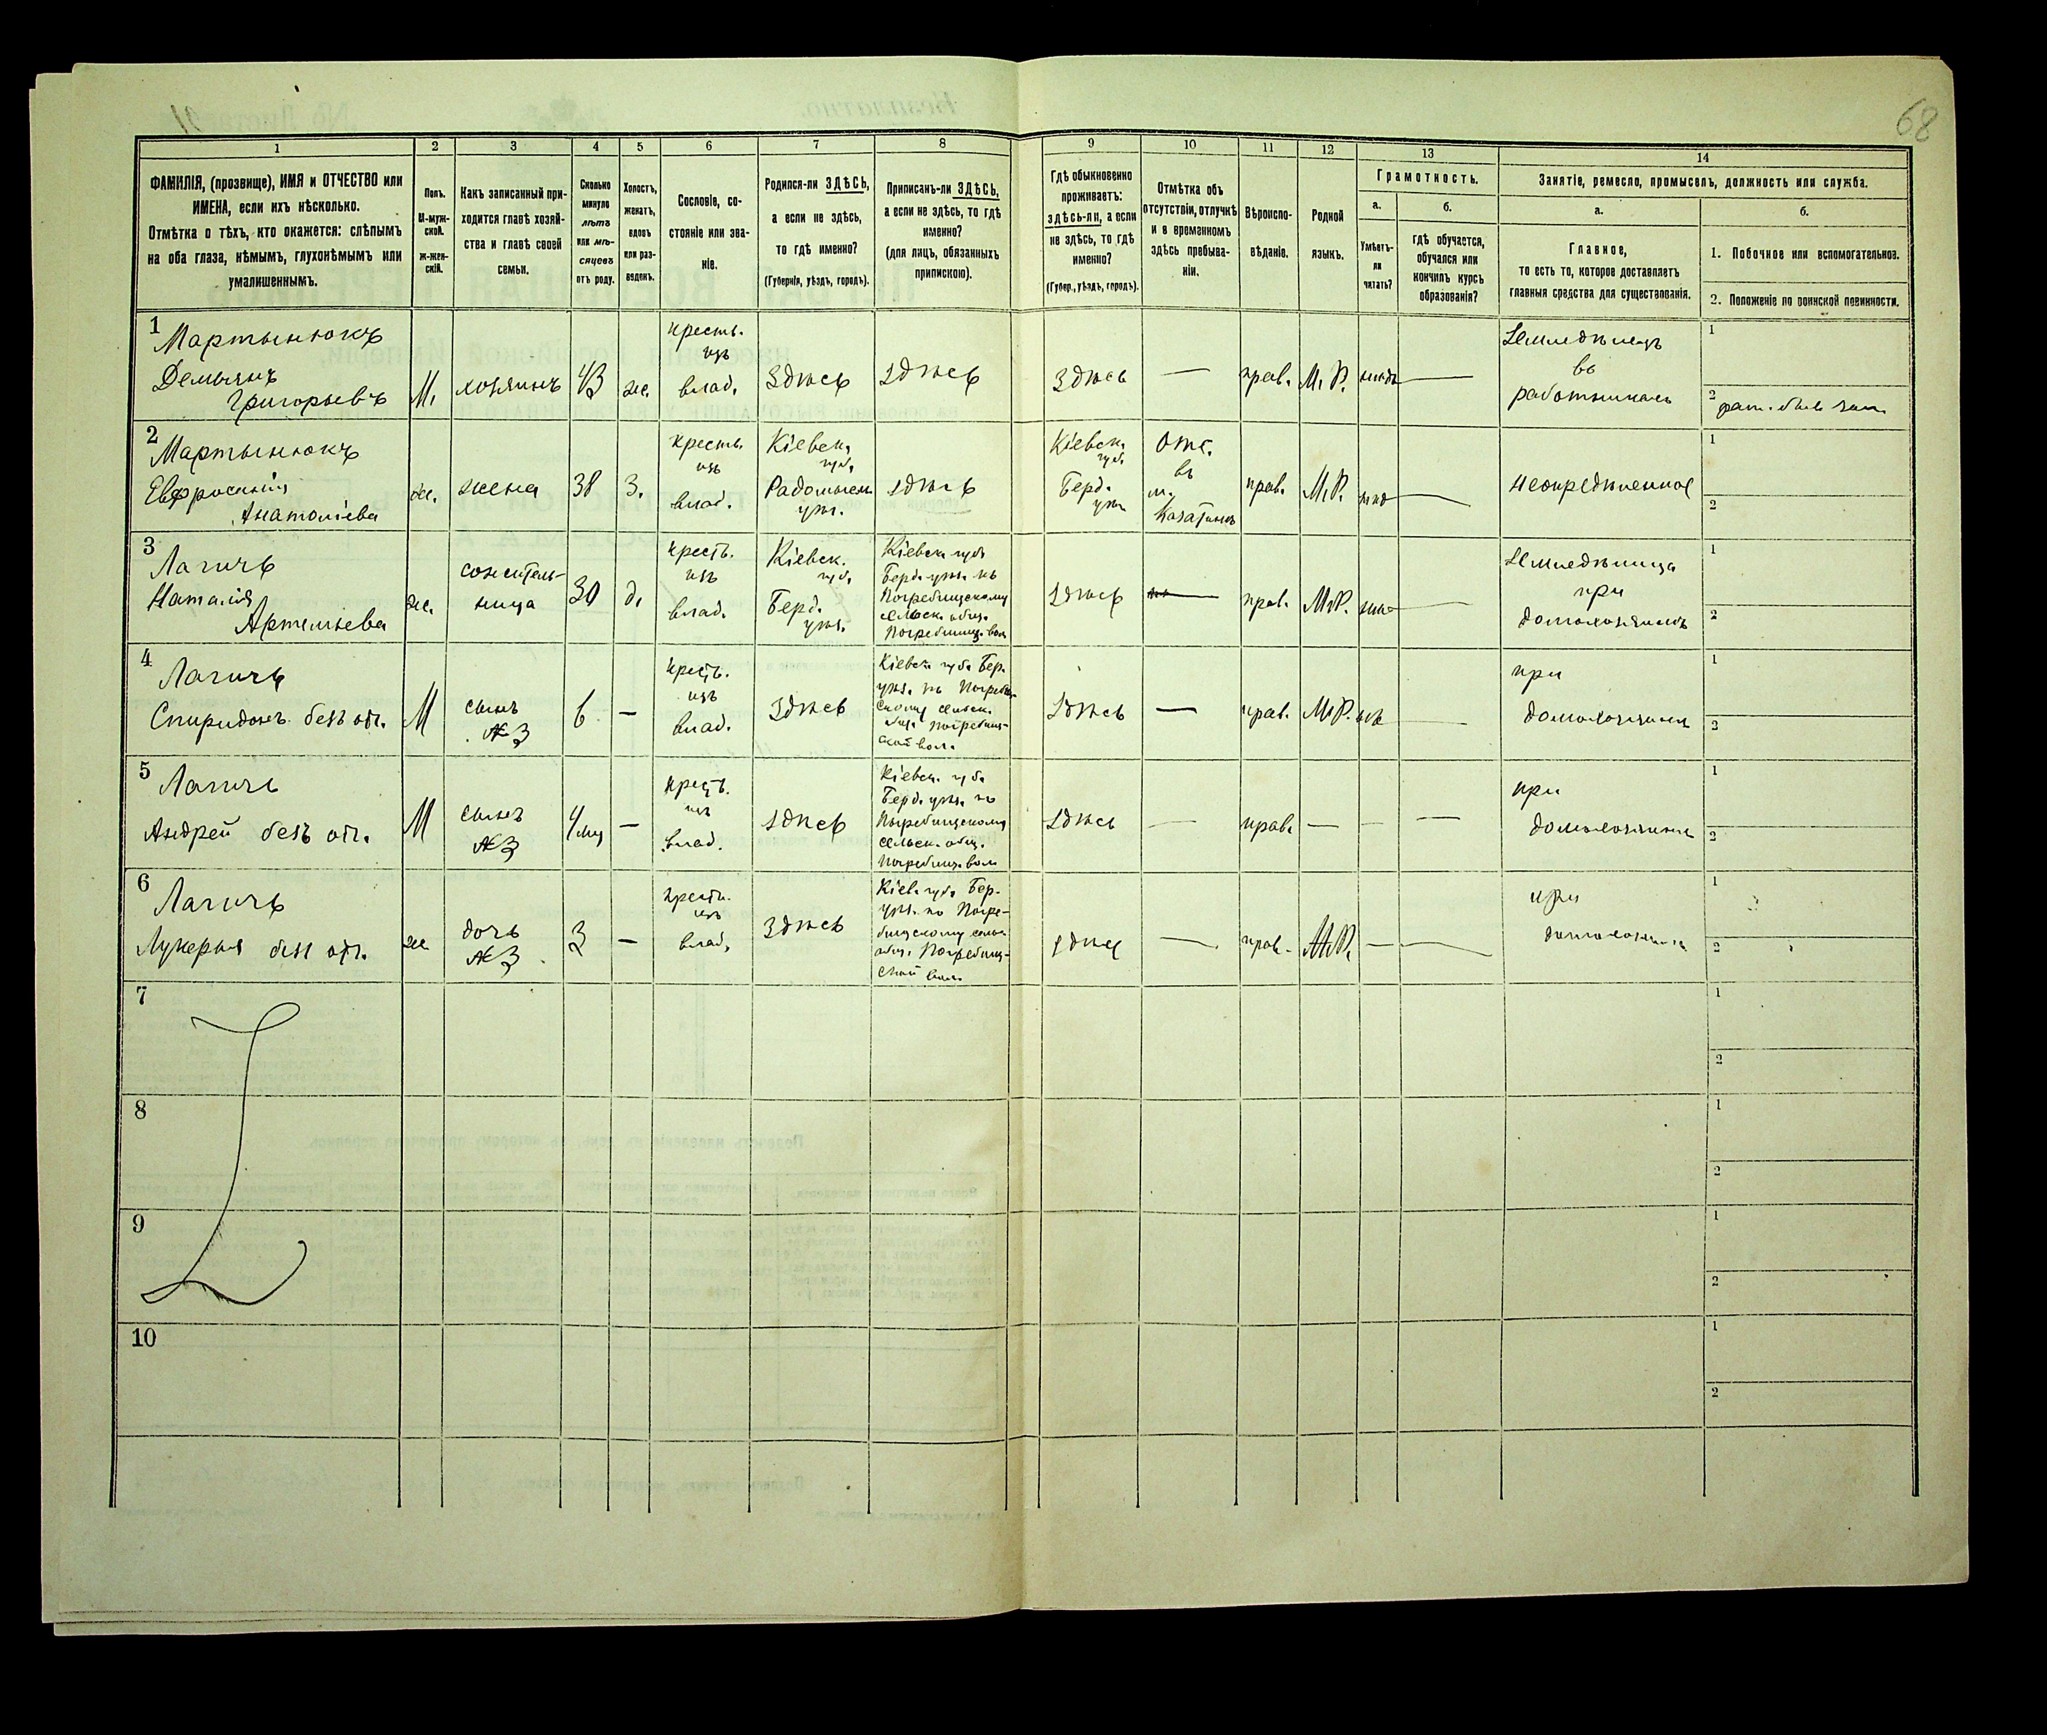 68
1
2
3
4
5
6
7
8
9
10
11
12
13
14
ФАМИЛІЯ, (прозвище), ИМЯ и ОТЧЕСТВО или
ИМЕНА, если ихъ нѣсколько.
Отмѣтка о тѣхъ, кто окажется: слѣпымъ
на оба глаза, нѣмымъ, глухонѣмымъ или
умалишеннымъ.
Полъ.
М-муж-
ской.
Ж-жен-
скій.
Какъ записанный при-
ходится главѣ хозяй-
ства и главѣ своей
семьи.
Сколько
минуло
лѣтъ
или мѣ-
сяцевъ
отъ роду.
Холостъ,
женатъ,
вдовъ
или раз-
веденъ.
Сословіе, со-
стояніе или зва-
ніе.
Родился-ли ЗДѢСЬ,
а если не здѣсь,
то гдѣ именно?
(Губернія, уѣздъ, городъ).
Приписанъ-ли ЗДѢСЬ,
а если не здѣсь, то гдѣ
именно?
(для лицъ, обязанныхъ
припискою).
Гдѣ обыкновенно
проживаетъ:
здѣсь-ли, а если
не здѣсь, то гдѣ
именно?
(Губер., уѣздъ, городъ).
Отмѣтка объ
отсутствіи, отлучкѣ
и о временномъ
здѣсь пребыва-
ніи.
Вѣроиспо-
вѣданіе.
Родной
языкъ.
Грамотность.
а.
Умѣетъ-
ли
читать?
б.
гдѣ обучается,
обучался или
кончилъ курсъ
образованія?
Занятіе, ремесло, промыселъ, должность или служба.
а.
Главное,
то есть то, которое доставляетъ
главныя средства для существованія.
б.
1. Побочное или вспомогательное.
2. Положеніе по воинской повинности.
1
Мартынюкъ
Демьянъ
Григорьевъ
М.
хозяинъ
43
ж.
крестьян.
изъ
влад.
Здѣсь
Здѣсь
Здѣсь
—
прав.
М. Р.
—
Земледѣлецъ
въ
работникахъ
1
2
2
Мартынюкъ
Евфросинія
Анатоліева
ж.
жена
38
З.
кресть.
изъ
влад.
Кіевск.
губ.
Радомысл.
уѣз.
Здѣсь
Кіевск.
губ.
Берд.
уѣз.
Отс.
въ
м.
Казатинъ
прав.
М. Р.
—
неопредѣленное
1
2
3
Лагичъ
Наталія
Артемьева
ж.
сожитель-
ница
30
д.
крест.
изъ
влад.
Кіевск.
губ.
Берд.
уѣз.
Кіевск. губ.
Берд. уѣз. къ
Погребищскому
сельск. общ.
Погребищ. вол.
Здѣсь
прав.
М. Р.
—
Земледѣлица
при
домохозяинѣ
1
2
4
Лагичъ
Спиридонъ безъ отч.
М
сынъ
№3
6
—
крест.
изъ
влад.
Здѣсь
Кіевск. губ. Бер.
уѣз. къ Погребищ-
скому сельск.
общ. Погребищ-
ской вол.
Здѣсь
—
прав.
М. Р.
—
при
домохозяинѣ
1
2
5
Лагичъ
Андрей безъ отч.
М
сынъ
№3
4 мѣс
—
крест.
изъ
влад.
Здѣсь
Кіевск. губ.
Берд. уѣз. къ
Погребищскому
сельск. общ.
Погребищ. вол.
Здѣсь
—
прав.
—
—
—
при
домохозяинѣ
1
2
6
Лагичъ
Лукерья без отч.
ж
дочь
№3
3
—
крест.
изъ
влад.
Здѣсь
Кіев. губ. Бер.
уѣз. къ Погре-
бищскому сельск.
общ. Погребищ-
ской вол.
Здѣсь
—
прав.
М. Р.
—
—
при
домохозяинѣ
1
2
7
1
2
8
1
2
9
1
2
10
1
2